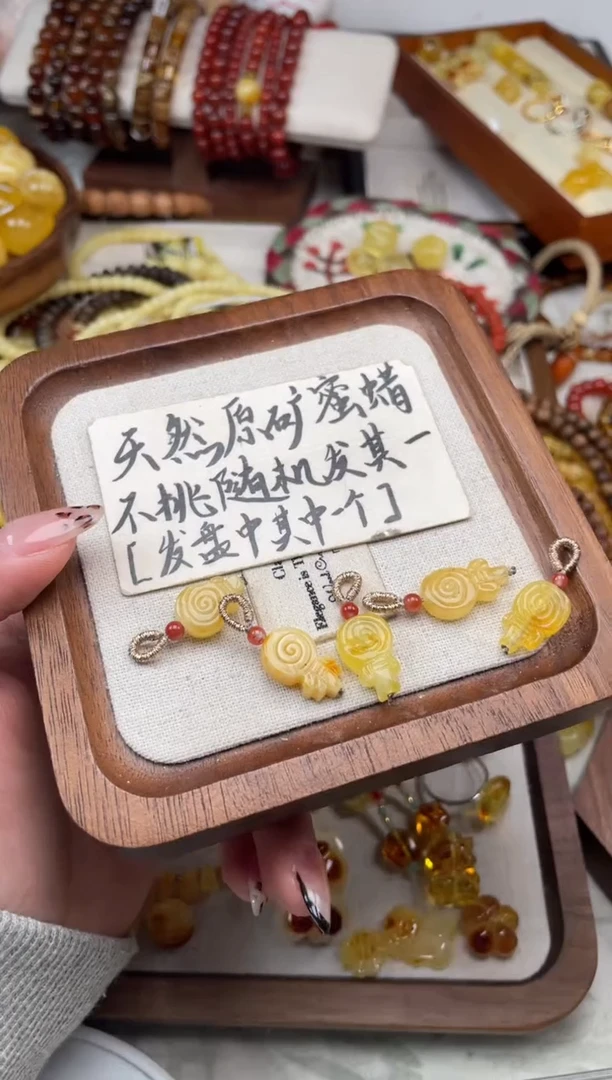 天然原矿蜜蜡
不挑随机发其一
[发盘中其中一个]
Elegance is